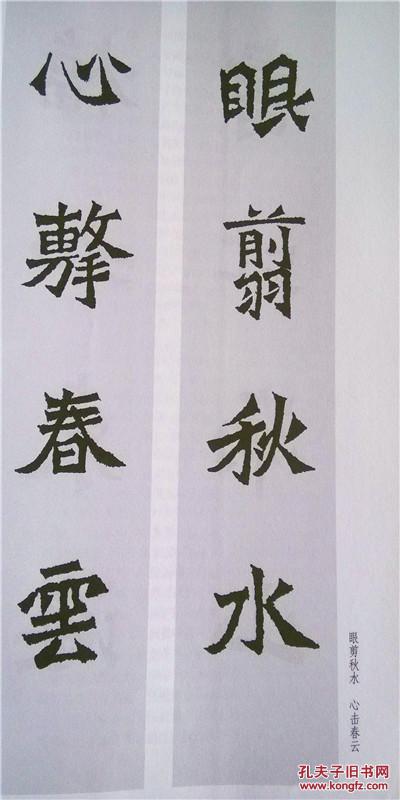 眼翦秋水
心擊春雲
眼剪秋水 心击春云
孔夫子旧书网
www.kongfz.com